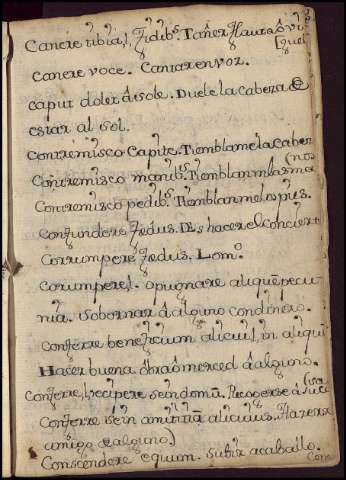 Canere tibia, l, fidibs. Tañer flauta ô vi-
[guel
canere voce. Cantar en voz.
caput dolet â sole. Duele la cabeza de
estar al sol.
contremisco capite. Tiemblame la cabez
Contremisco manibus. Tiemblan mlas ma
(nos
Contremisco pedibus. Tiemblan melos pies.
Confundere fedus. Des hacer el conciert
Corrumpere fedus. Lomo
corumpere, l, opugnare aliquē pecu-
niâ. sobornar â alguno con dinero.
Conferre beneficium alicui, l, in aliquē
Hacer buena obra ô merced â alguno.
Conferre, l, recipere se in domū. Recogerse â su ca
(sa
Conferre se in amicitiā alicuius. Hazerse
amigo de alguno)
Conscendere equum. subir a caballo.
Cons